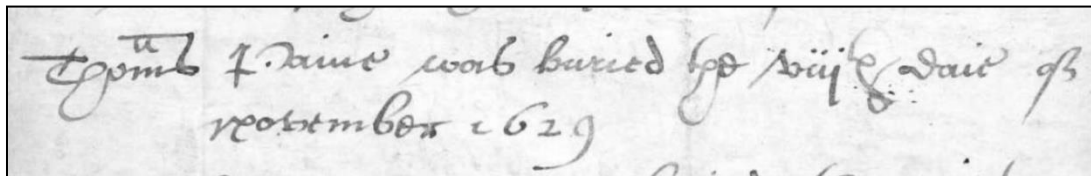 Thoms Paine was buried the viijth daie of
november 1629